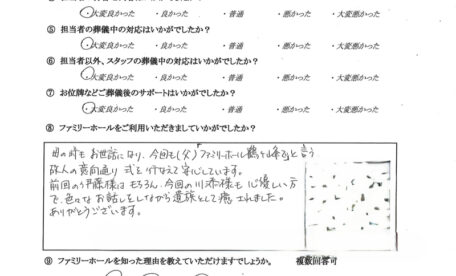 ・大変良かった ・良かった ・普通 ・悪かった ・大変悪かった
⑤ 担当者の葬儀中の対応はいかがでしたか？
・大変良かった ・良かった ・普通 ・悪かった ・大変悪かった
⑥ 担当者以外、スタッフの葬儀中の対応はいかがでしたか？
・大変良かった ・良かった ・普通 ・悪かった ・大変悪かった
⑦ お位牌などご葬儀後のサポートはいかがでしたか？
・大変良かった ・良かった ・普通 ・悪かった ・大変悪かった
⑧ ファミリーホールをご利用いただきましていかがでしたか？
母の時も お世話になり、今回も(父)「ファミリーホール鶴ヶ峰」と言う
故人の意向通り 式を行なえて安心しています。
前回の伊藤様は もちろん、今回の 川 様も 心優しい方
で、色々な お話しをしながら 遺族として 癒されました。
ありがとうございます。
⑨ ファミリーホールを知った理由を教えていただけますでしょうか。 複数回答可